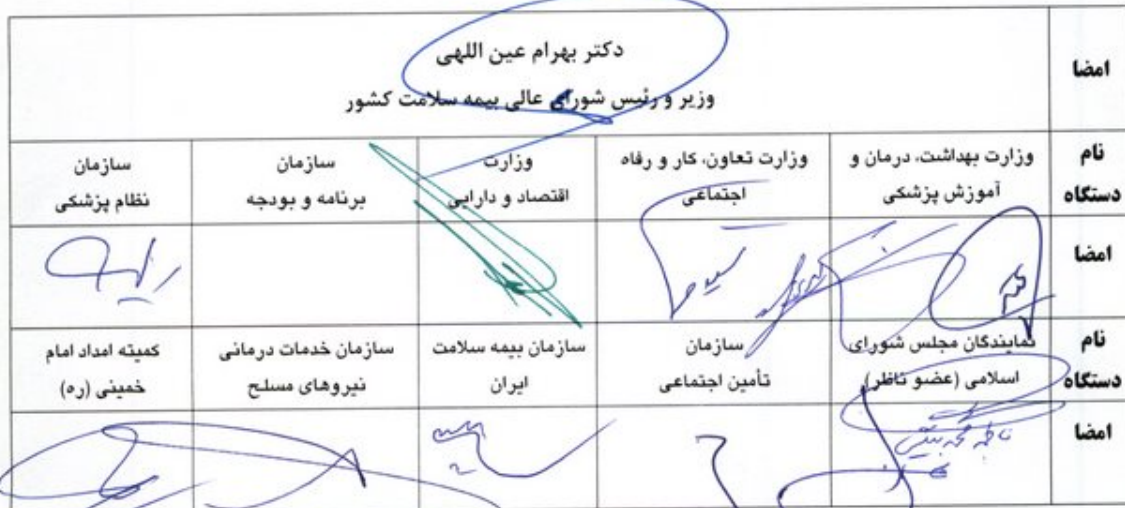 امضا
دکتر بهرام عین اللهی
وزیر و رئیس شورای عالی بیمه سلامت کشور
نام دستگاه
وزارت بهداشت، درمان و
آموزش پزشکی
وزارت تعاون، کار و رفاه
اجتماعی
وزارت
اقتصاد و دارایی
سازمان
برنامه و بودجه
سازمان
نظام پزشکی
امضا
نام دستگاه
نمایندگان مجلس شورای
اسلامی (عضو ناظر)
سازمان
تأمین اجتماعی
سازمان بیمه سلامت
ایران
سازمان خدمات درمانی
نیروهای مسلح
کمیته امداد امام
خمینی (ره)
امضا